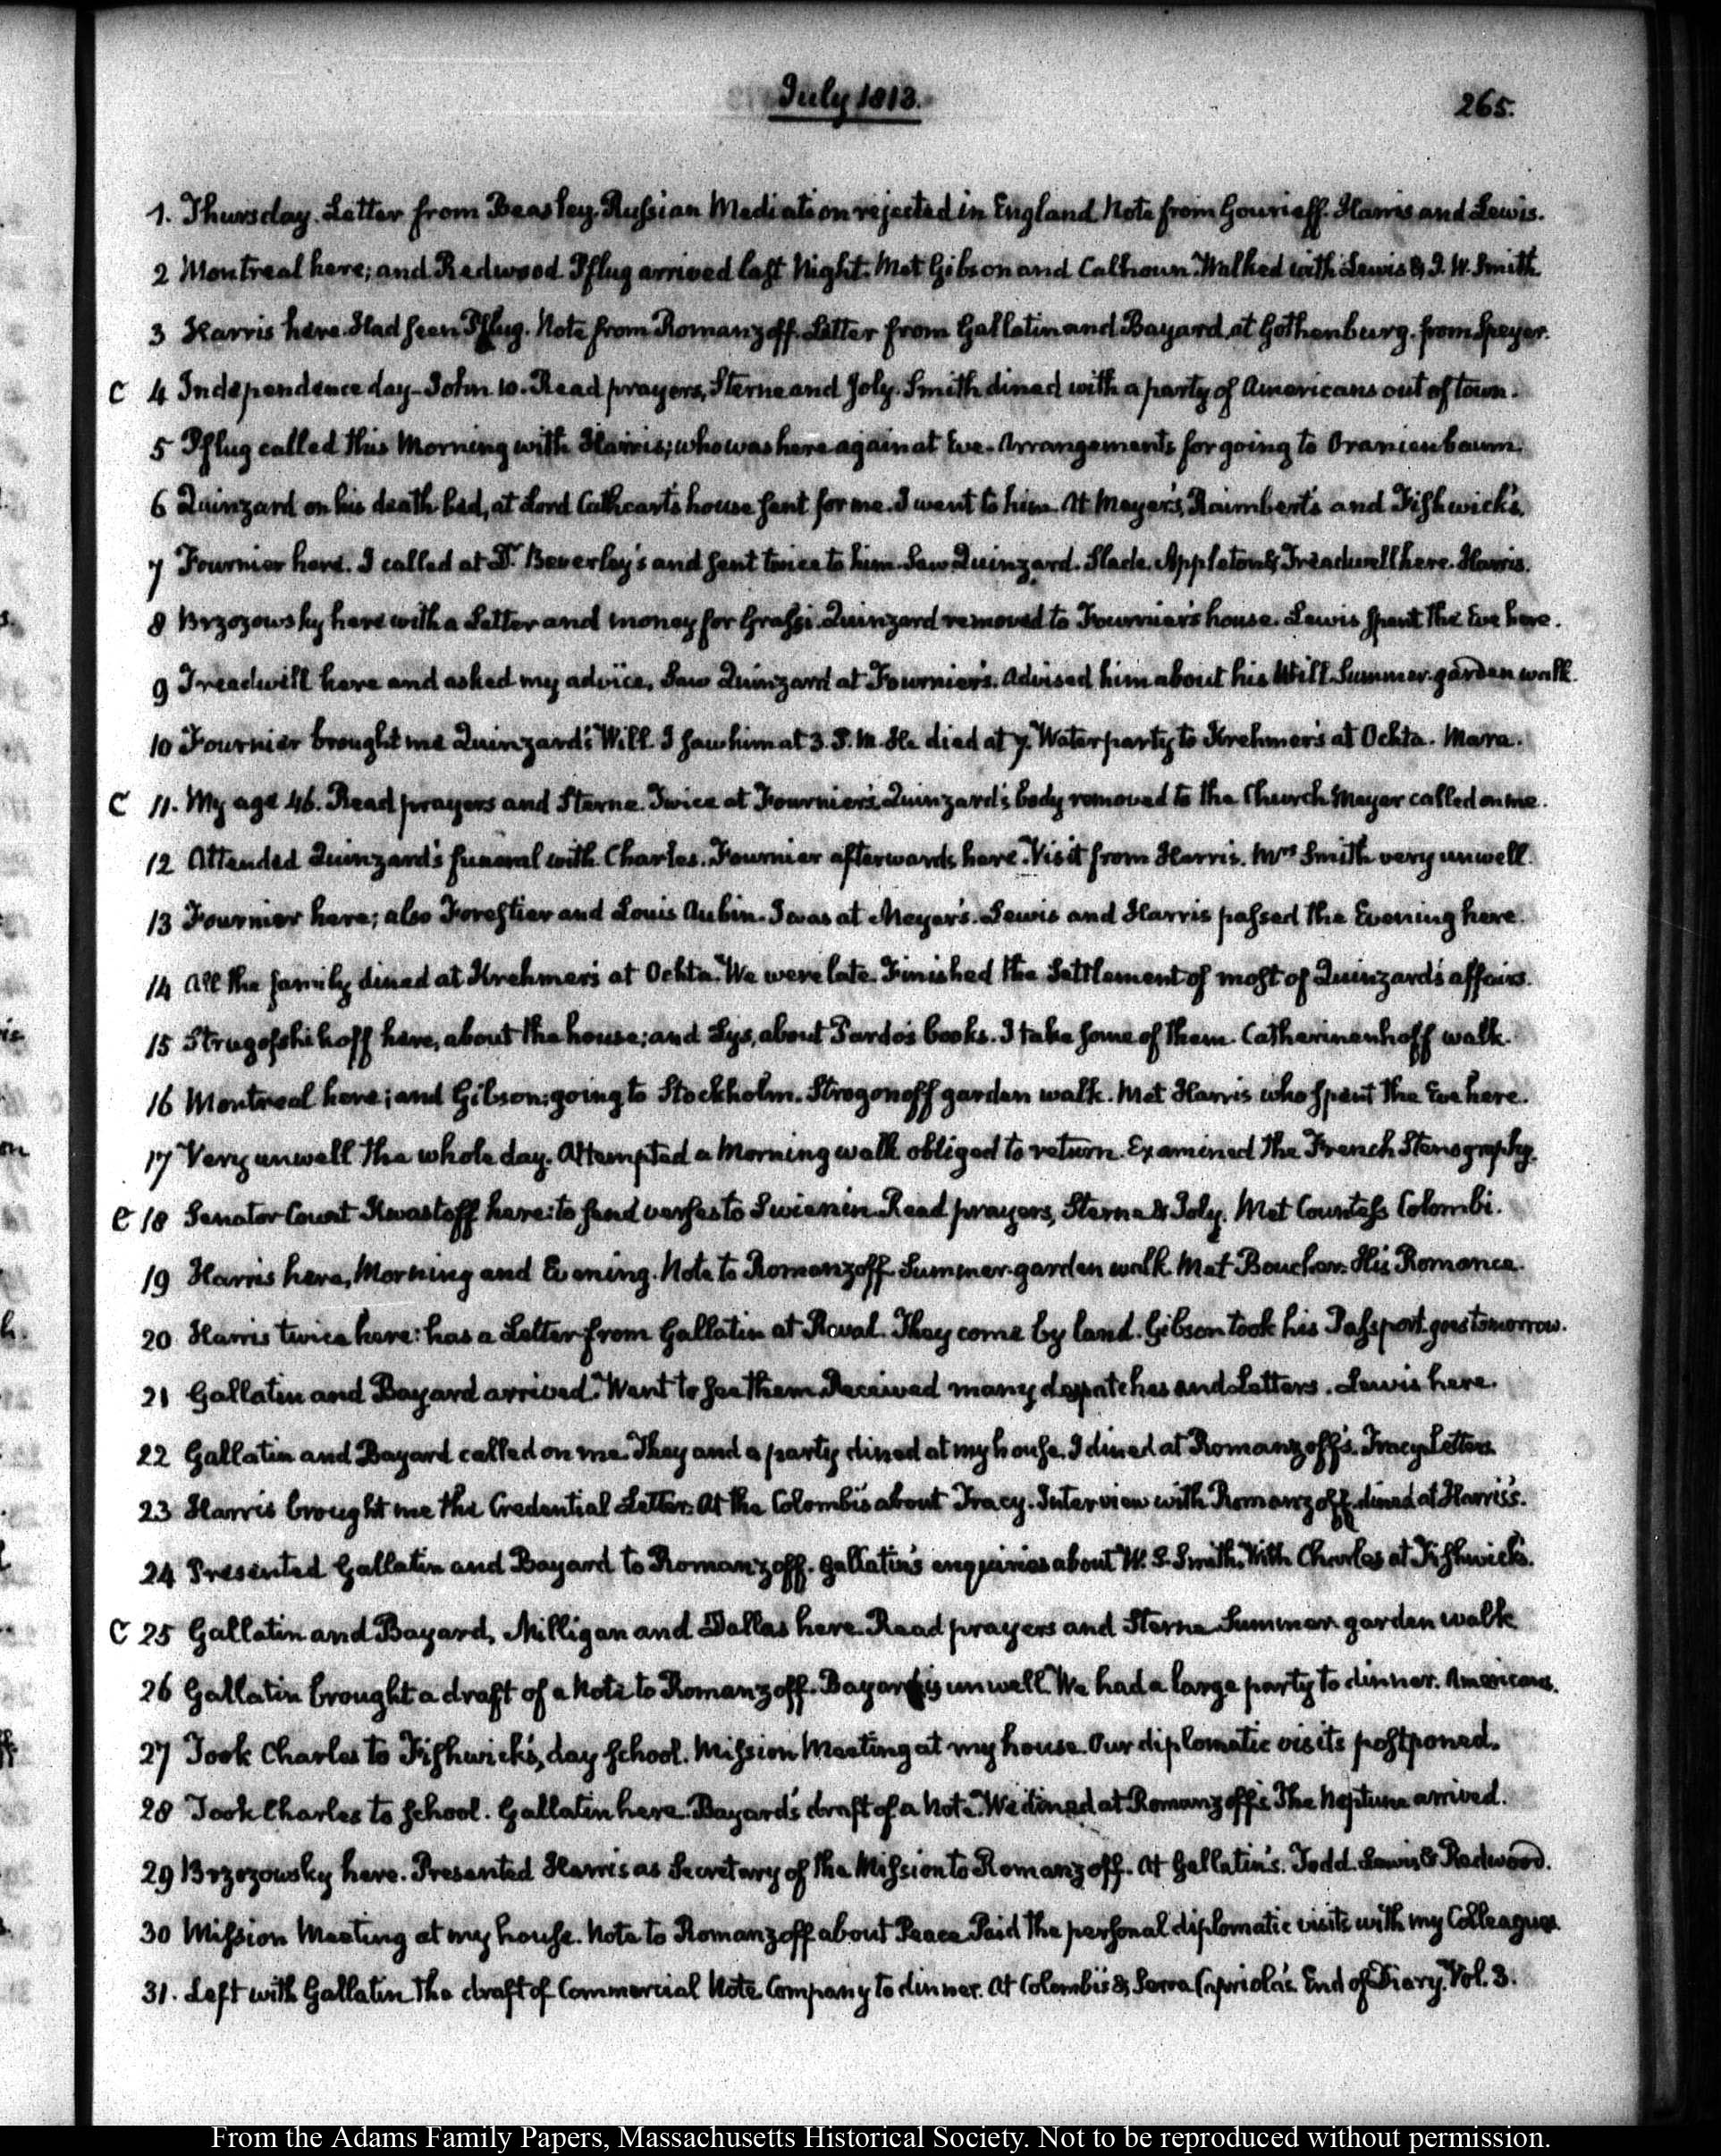 July 1813.
265.
1. Thursday. Letter from Beasley. Russian Mediation rejected in England. Note from Gourieff. Harris and Lewis.
2 Montreal here; and Redwood. Pflug arrived last Night. Met Gibson and Calhoun. Walked with Lewis & J. W. Smith.
3 Harris here. Had seen Pflug. Note from Romanzoff. Letter from Gallatin and Bayard at Gothenburg. from Speyer.
C 4 Independence day—John 10. Read prayers, Sterne and Joly. Smith dined with a party of Americans out of town.
5 Pflug called this Morning with Harris; who was here again at Eve. Arrangements for going to Oranienbaum.
6 Quinzard on his death bed, at Lord Cathcart's house sent for me. I went to him. At Meyer's, Raimbert's and Fishwick's.
7 Fournier here. I called at Dr. Beverley's and sent twice to him. Saw Quinzard. Slade, Appleton & Treadwell here. Harris.
8 Brzozowsky here with a Letter and money for Grassi. Quinzard removed to Fournier's house. Lewis spent the Eve here.
9 Treadwell here and asked my advice. Saw Quinzard at Fournier's. Advised him about his Will. Summer-garden walk.
10 Fournier brought me Quinzard's Will. I saw him at 3. P.M. He died at 7. Water party to Krehmer's at Ochta. Mara.
C 11. My age 46. Read prayers and Sterne. Twice at Fournier's, Quinzard's body removed to the Church. Meyer called on me.
12 Attended Quinzard's funeral with Charles. Fournier afterwards here. Visit from Harris. Mrs Smith very unwell.
13 Fournier here; also Forestier and Louis Aubin. I was at Meyer's. Lewis and Harris passed the Evening here.
14 All the family dined at Krehmer's at Ochta. We were late. Finished the Settlement of most of Quinzard's affairs.
15 Strugofshikoff here, about the house; and Lys, about Pardo's books. I take some of them. Catherinenhoff walk.
16 Montreal here; and Gibson; going to Stockholm. Strogonoff garden walk. Met Harris who spent the Eve here.
17 Very unwell the whole day. Attempted a Morning walk obliged to return. Examined the French Stenography.
C 18 Senator Count Kwastoff here: to send verses to Swienin. Read prayers, Sterne & Joly. Met Countess Colombi.
19 Harris here, Morning and Evening. Note to Romanzoff. Summer-garden walk. Met Boucher. His Romance.
20 Harris twice here: has a Letter from Gallatin at Reval. They come by land. Gibson took his Passport. goes tomorrow.
21 Gallatin and Bayard arrived. Went to see them. Received many despatches and Letters. Lewis here.
22 Gallatin and Bayard called on me. They and a party dined at my house. I dined at Romanzoff's. Tracy. Letters.
23 Harris brought me the Credential Letter. At the Colombi's about Tracy. Interview with Romanzoff. dined at Harris's.
24 Presented Gallatin and Bayard to Romanzoff. Gallatin's enquiries about W. S. Smith. With Charles at Fishwick's.
C 25 Gallatin and Bayard, Milligan and Dallas here. Read prayers and Sterne. Summer garden walk
26 Gallatin brought a draft of a Note to Romanzoff. Bayard is unwell. We had a large party to dinner. Americans.
27 Took Charles to Fishwick's, day school. Mission Meeting at my house. Our diplomatic visits postponed.
28 Took Charles to school. Gallatin here. Bayard's draft of a Note. We dined at Romanzoff's. The Neptune arrived.
29 Brzozowsky here. Presented Harris as Secretary of the Mission to Romanzoff. At Gallatin's. Todd. Lewis & Redwood.
30 Mission Meeting at my house. Note to Romanzoff about Peace. Paid the personal diplomatic visits with my Colleagues.
31. Left with Gallatin the draft of Commercial Note. Company to dinner. At Colombi's & Serra Capriola's. End of Diary. Vol. 3.
From the Adams Family Papers, Massachusetts Historical Society. Not to be reproduced without permission.